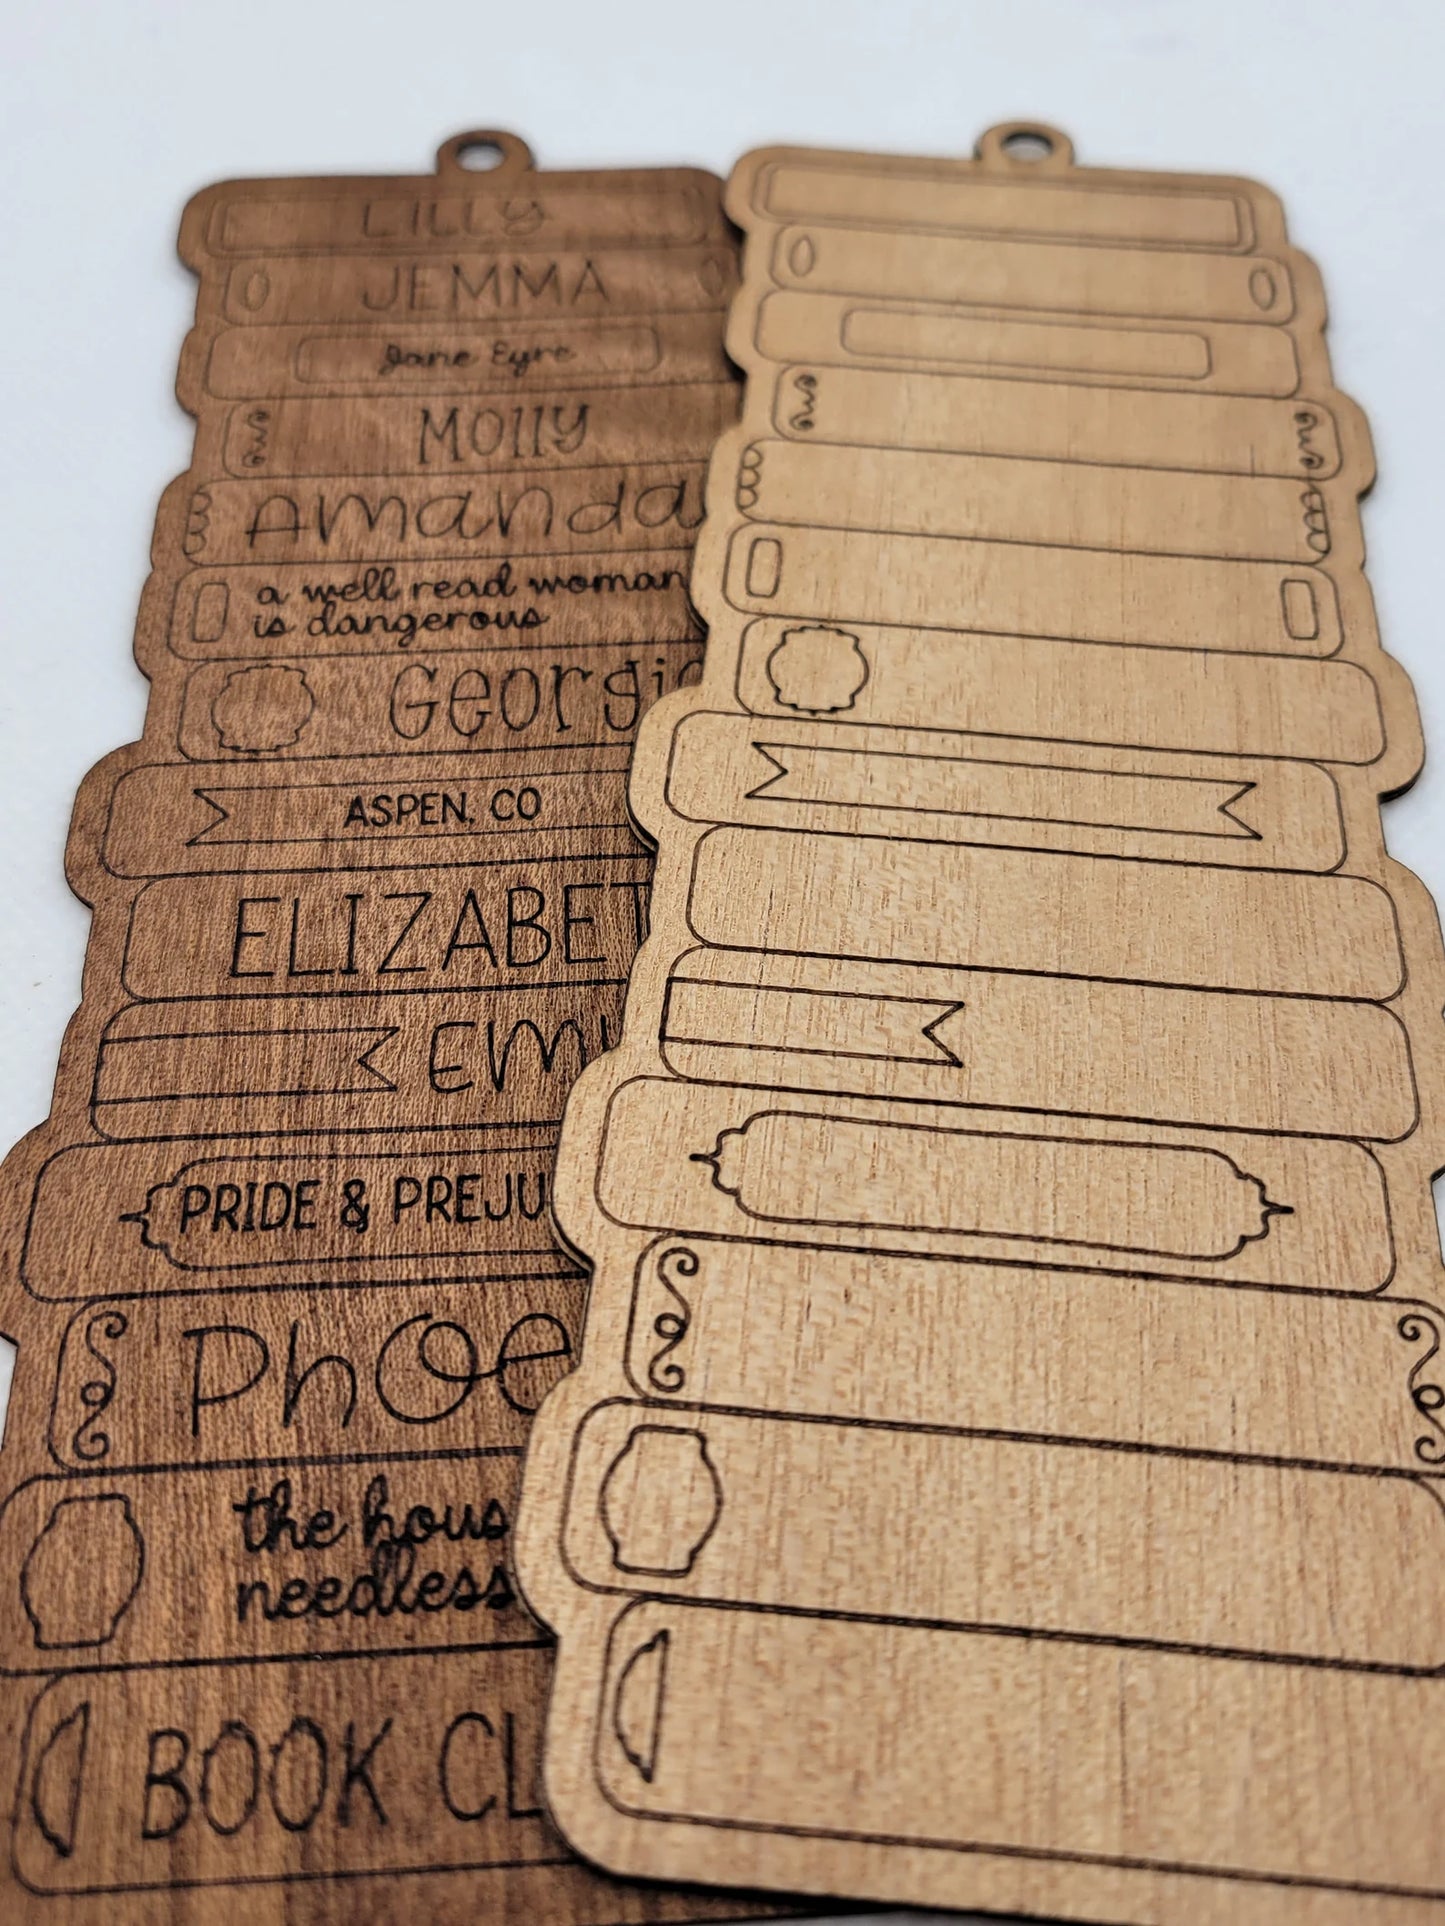 LILLY
JEMMA
Jane Eyre
Molly
Amanda
a well read woman
is dangerous
Georgi
ASPEN, CO
ELIZABET
EM
PRIDE & PREJU
Phoe
the hous
needless
BOOK CL